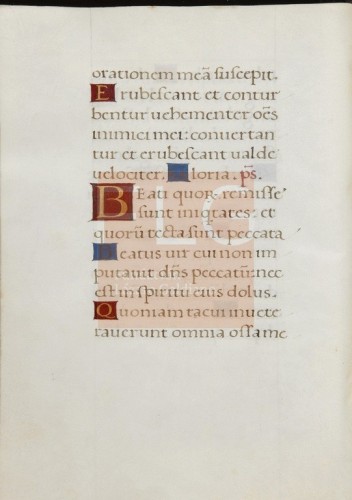 orationem meã suscepit.
Erubescant et contur
bentur uehementer oẽs
inimici mei: conuertan
tur et erubescant ualde
uelociter. Gloria. ps.
BEati quor. remisse
sunt iniqtates: et
quorũ tecta sunt peccata
Beatus uir cui non im
putauit dñs peccatũ: nec
est in spiritu eius dolus.
Quoniam tacui inuete
rauerunt omnia ossa me